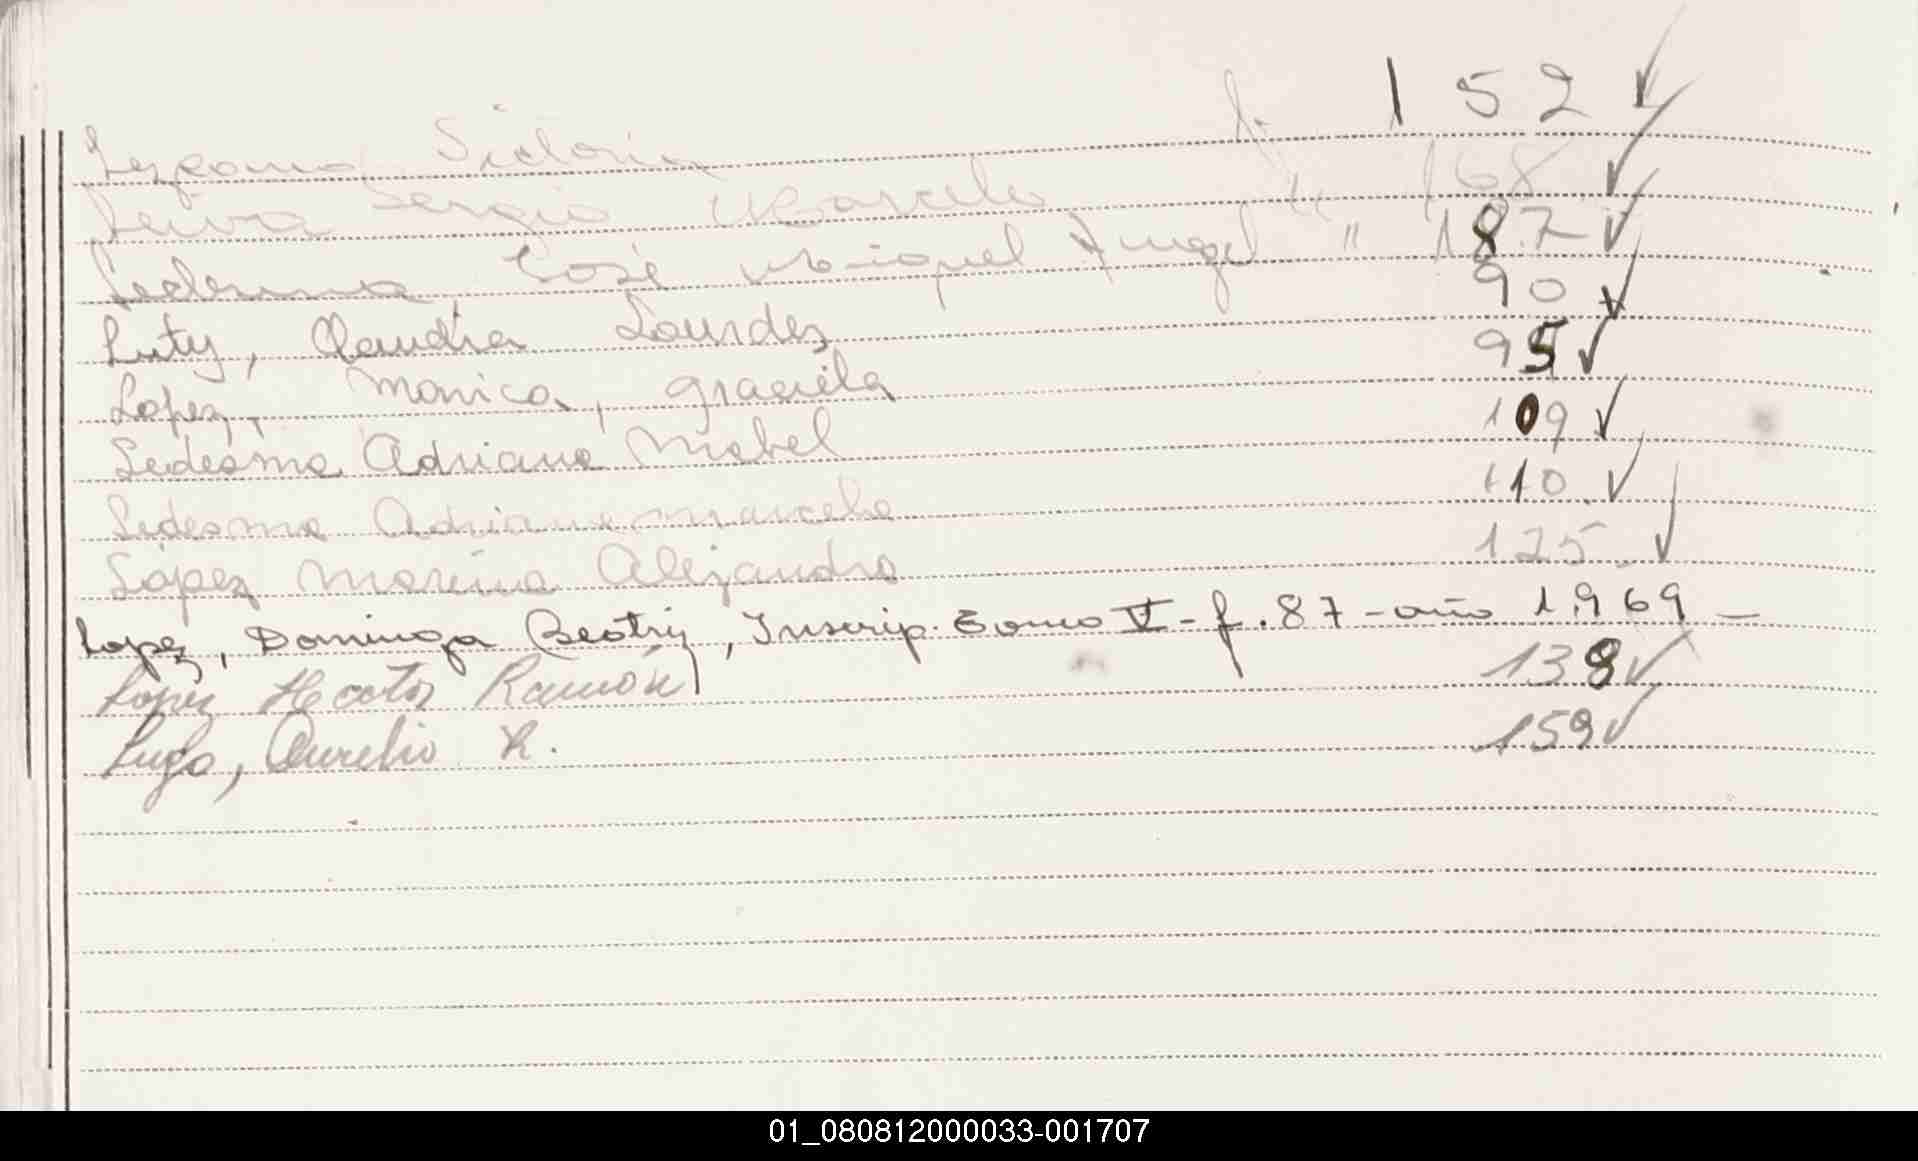 Lezcano Victoria f. 152
Leiva Sergio Marcelo " 168
Ledesma José Miguel Angel " 187
Luty, Claudia Lourdes 90
Lopez, Monica, Graciela 95
Ledesma Adriana Mabel 109
Ledesma Adriana Marcela 110
López Marina Alejandra 125
Lopez, Dominga Beatriz, Inscrip. Tomo V - f. 87 - año 1.969 -
Lopez Hector Ramón 138
Lugo, Aurelio R. 159
01_080812000033-001707